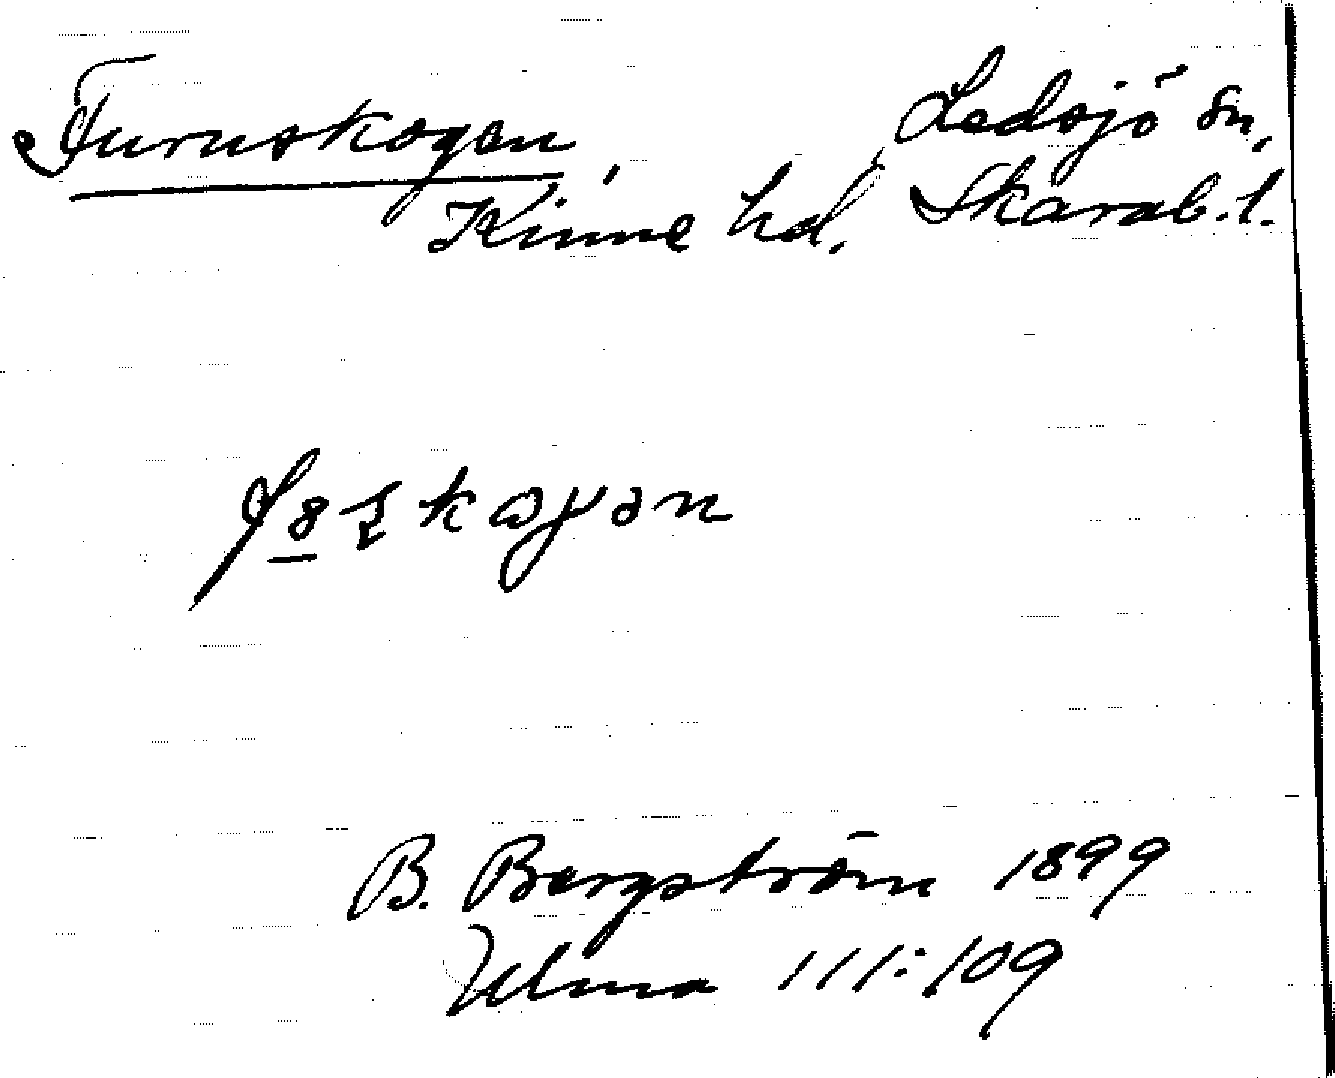 Furuskogen,
Ledsjö sn,
Kinne hd, Skarab. l.
B. Bergström 1899
Ulma 111:109